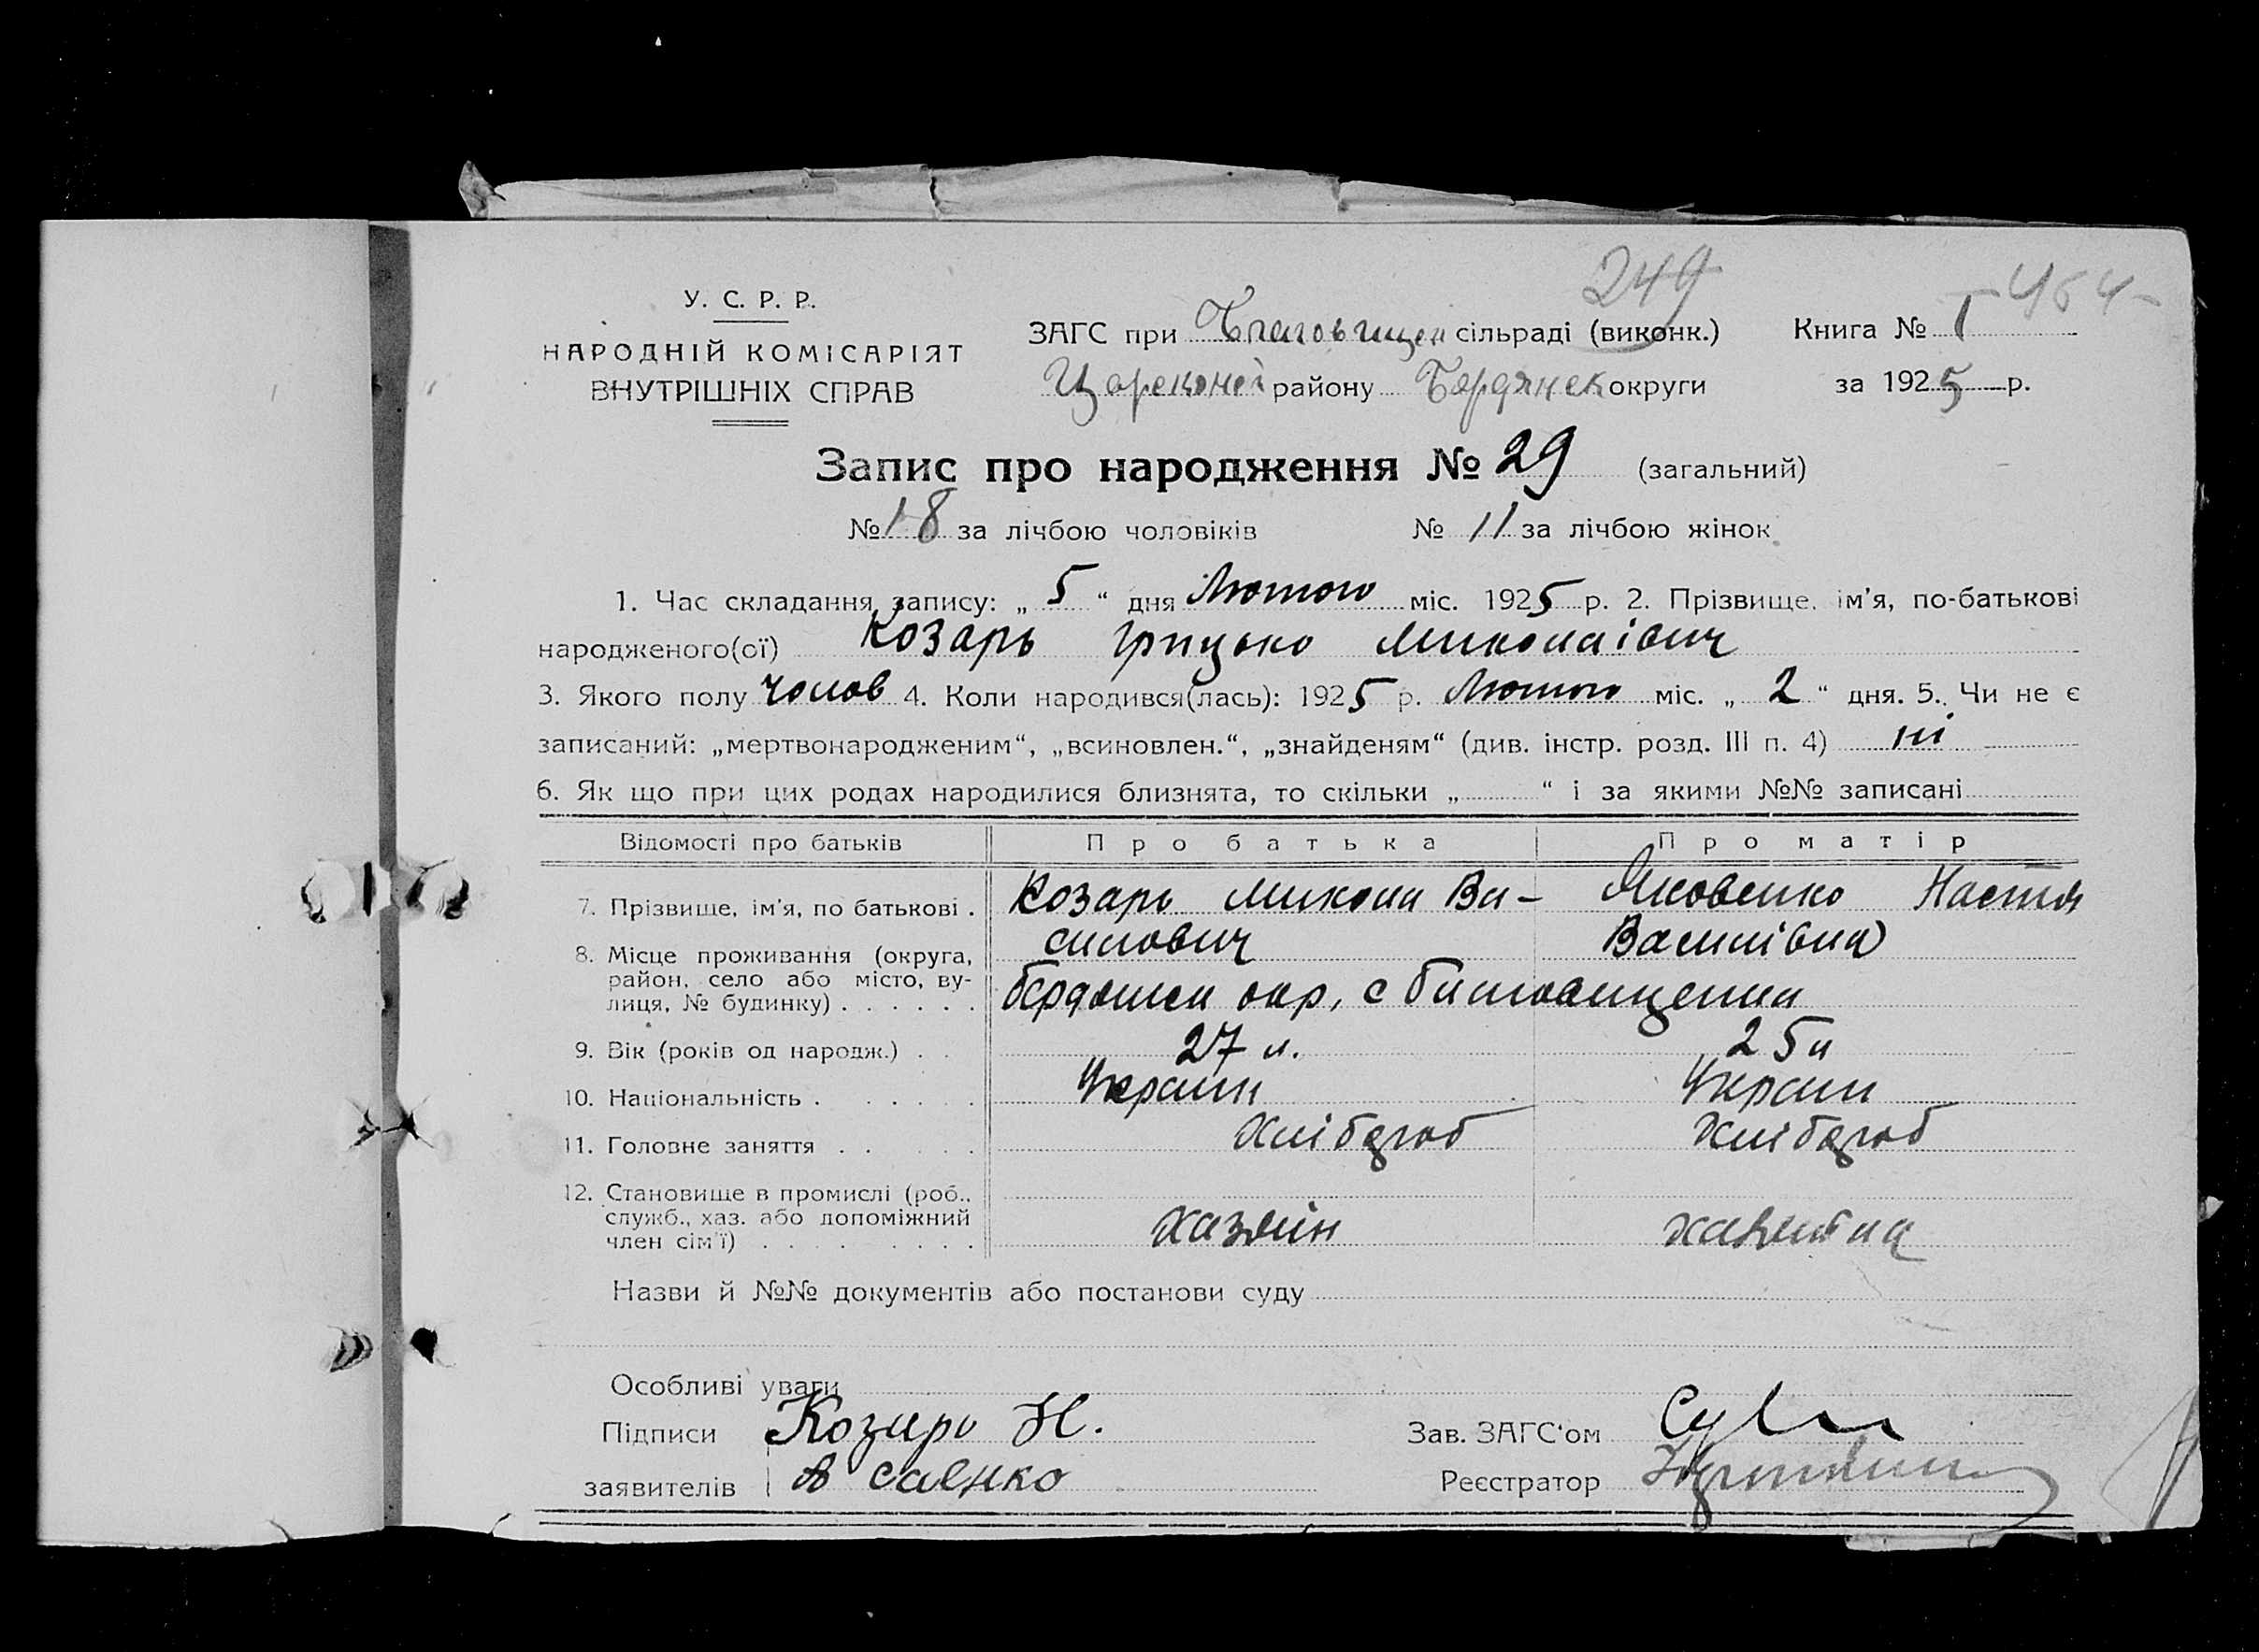 249
464
У. С. Р. Р.
НАРОДНІЙ КОМІСАРІЯТ
ВНУТРІШНІХ СПРАВ
ЗАГС при Благовіщен сільраді (виконк.) Книга № 1
району Бердянськ округи за 1925 р.
Запис про народження № 29 (загальний)
№ 18 за лічбою чоловіків № 11 за лічбою жінок
1. Час складання запису: „ 5 “ дня Лютого міс. 1925 р. 2. Прізвище, ім’я, по-батькові
народженого(ої) Козарь Грицько Миколаівич
3. Якого полу Чолов 4. Коли народився(лась): 1925 р. Лютого міс. „ 2 “ дня. 5. Чи не є
записаний: „мертвонародженим“, „всиновлен.“, „знайденям“ (див. інстр. розд. III п. 4) ні
6. Як що при цих родах народилися близнята, то скільки „ “ і за якими №№ записані
Відомості про батьків Про батька Про матір
7. Прізвище, ім’я, по батькові . Козарь Микола Ва- Яковенко Настя
силович Василівна
8. Місце проживання (округа,
район, село або місто, ву-
лиця, № будинку) . . . . . . Бердянськ окр, с Благовищенка
9. Вік (років од народж.) . . 27 л. 25 л
10. Національність . . . . . . Україн Україн
11. Головне заняття . . . . . Хлібороб Хлібороб
12. Становище в промислі (роб.,
служб., хаз. або допоміжний
член сім’ї) . . . . . . . . Хазяїн хазяйка
Назви й №№ документів або постанови суду
Особливі уваги
Підписи Козарь Н. Зав. ЗАГС‘ом
заявителів А Саенко Реєстратор